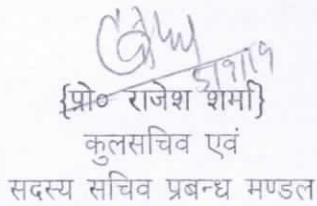 {प्रो० राजेश शर्मा}
कुलसचिव एवं
सदस्य सचिव प्रबन्ध मण्डल